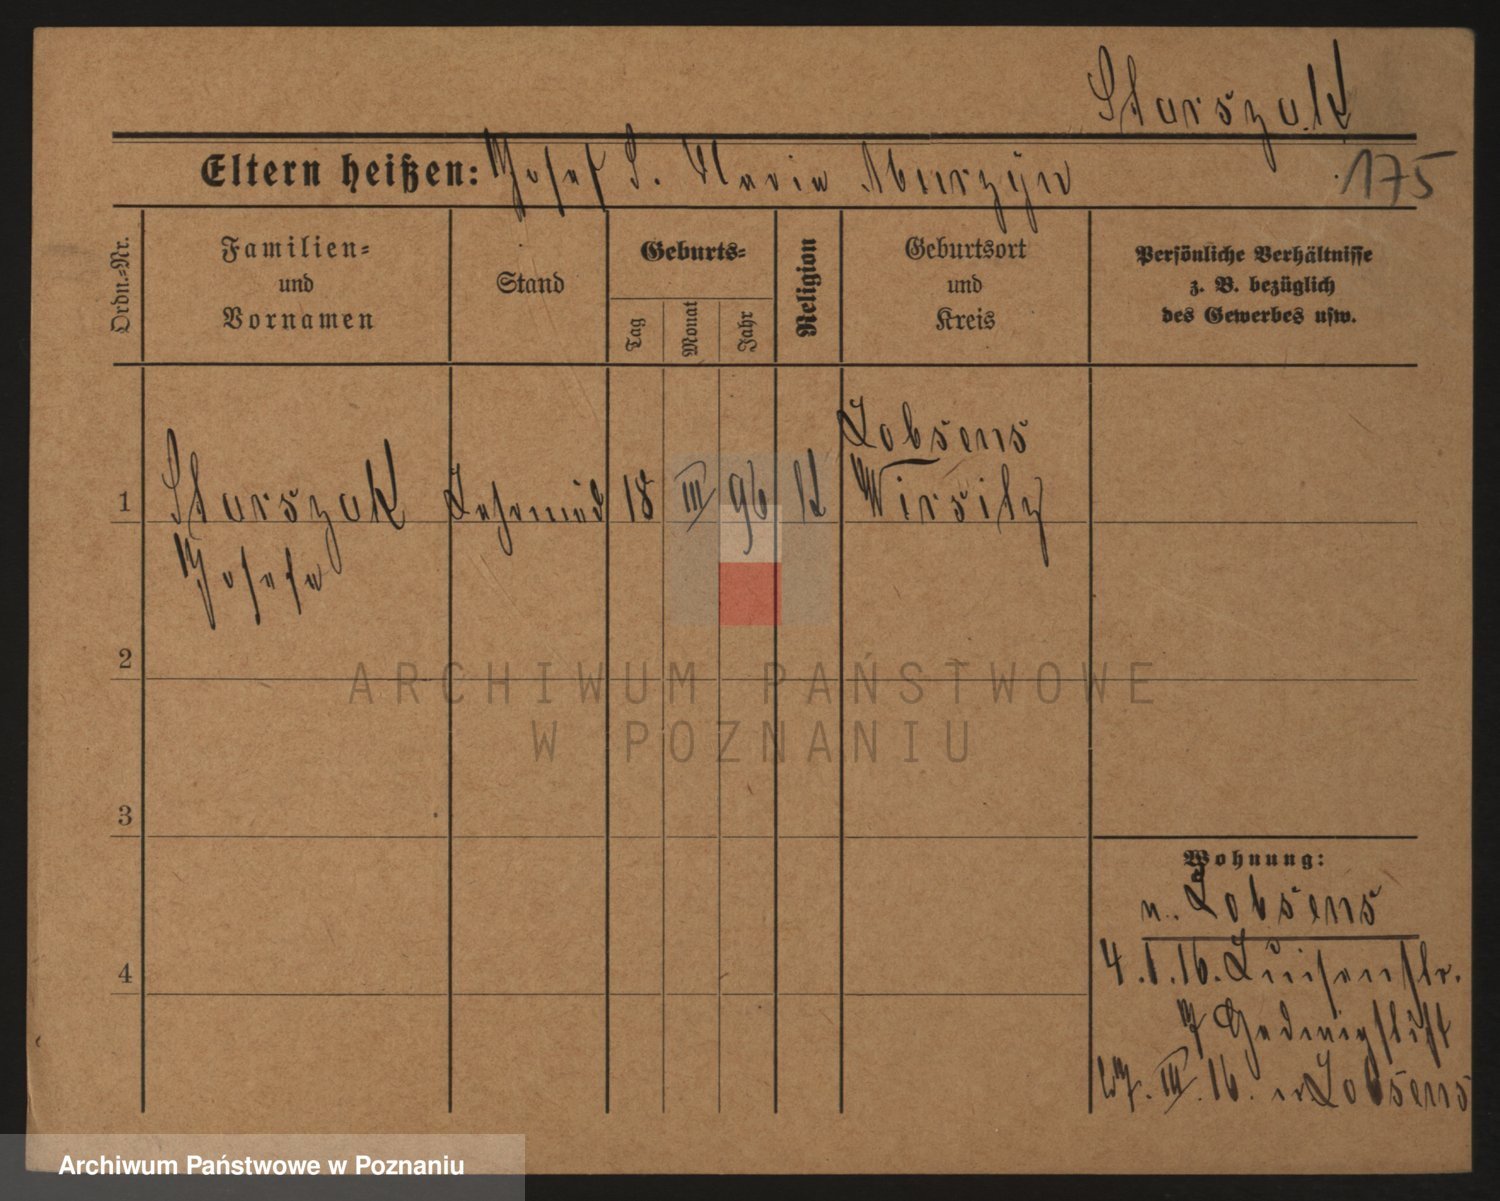 Starszak
Eltern heißen: Josef S. Maria Murzyn
175
Ordn.-Nr.
Familien-
und
Vornamen
Stand
Geburts-
Tag
Monat
Jahr
Religion
Geburtsort
und
Kreis
Persönliche Verhältnisse
z. B. bezüglich
des Gewerbes usw.
1
Starszak
Josefa
18
III
96
K
Lobsens
Wirsitz
2
3
4
Wohnung:
n. Lobsens
4.1.16. Luisenstr.
7
III.16. Lobsens
ARCHIWUM PAŃSTWOWE
W POZNANIU
Archiwum Państwowe w Poznaniu